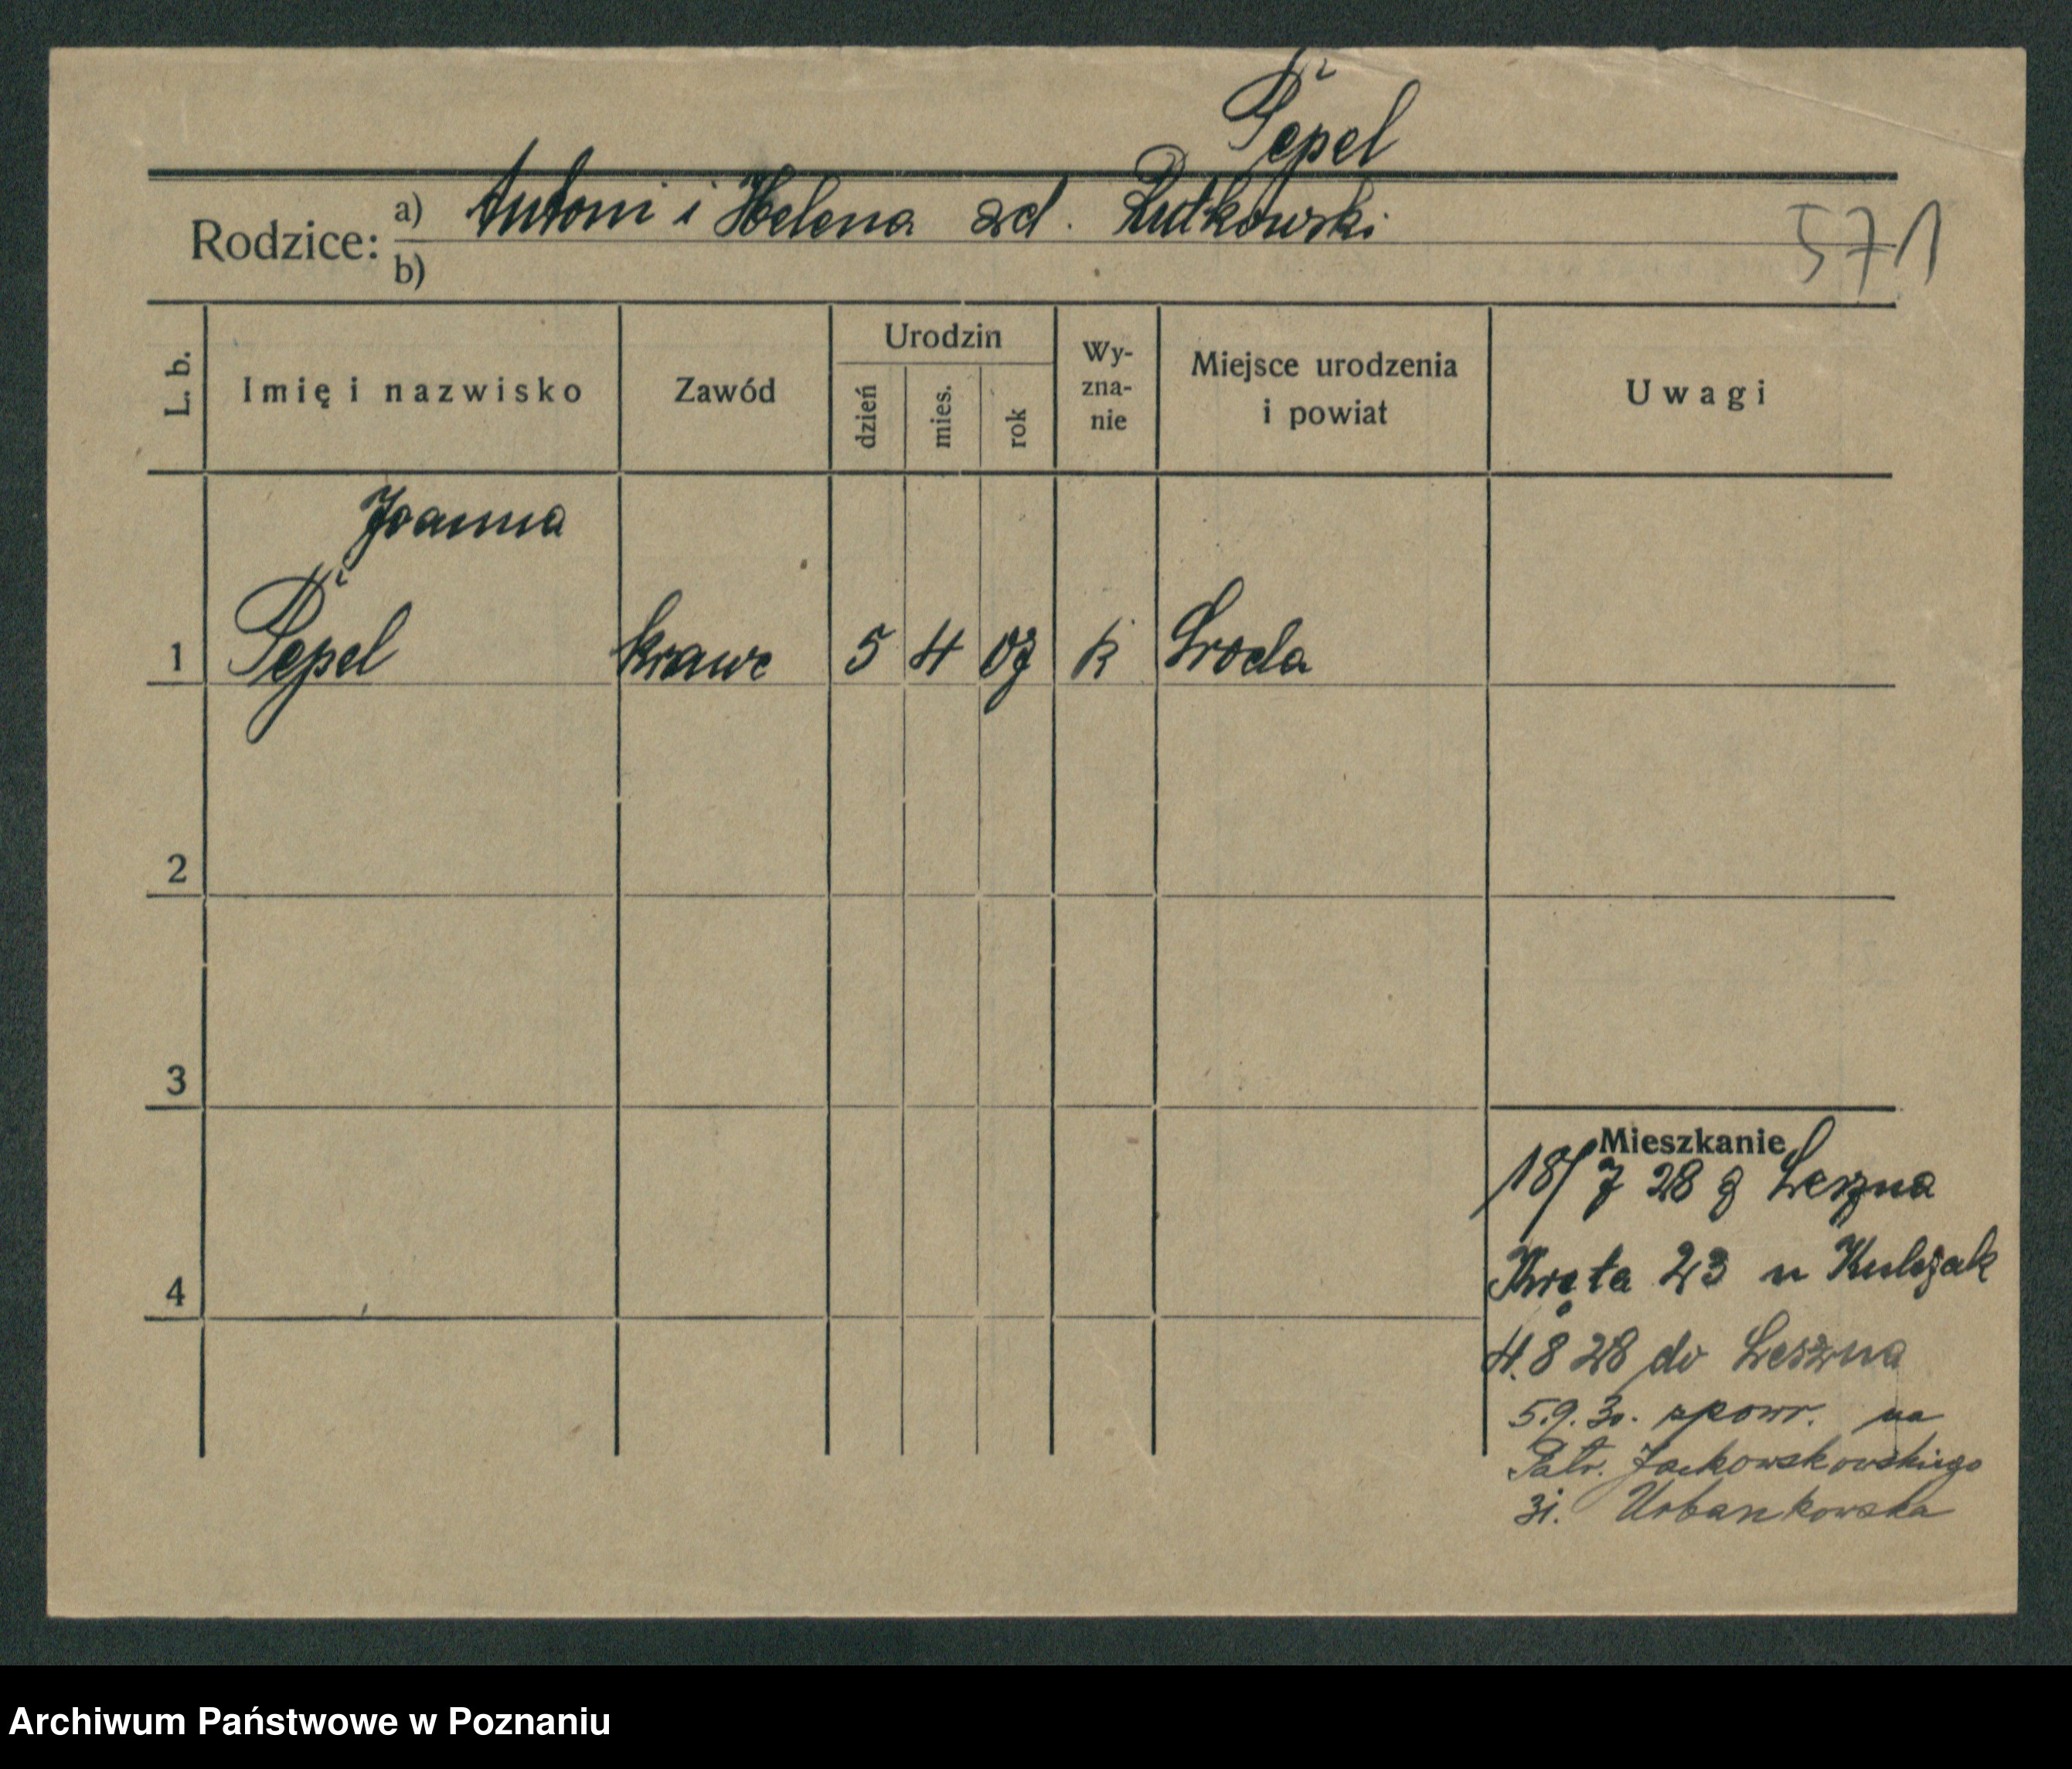 Pepel
Rodzice: a) Antoni i Helena zd. Rutkowski
b)
571
L. b. Imię i nazwisko Zawód Urodzin dzień mies. rok Wy-zna-nie Miejsce urodzenia i powiat Uwagi
Joanna
1 Pepel krawc 5 4 07 k Sroda
2
3
Mieszkanie
18/7 28 z Leszna
4
Kręta 23 u Kulczak
4.8 28 do Leszna
5.9.30. spowr. na
Patr. Jackowskowskiego
31. Urbankowska
Archiwum Państwowe w Poznaniu